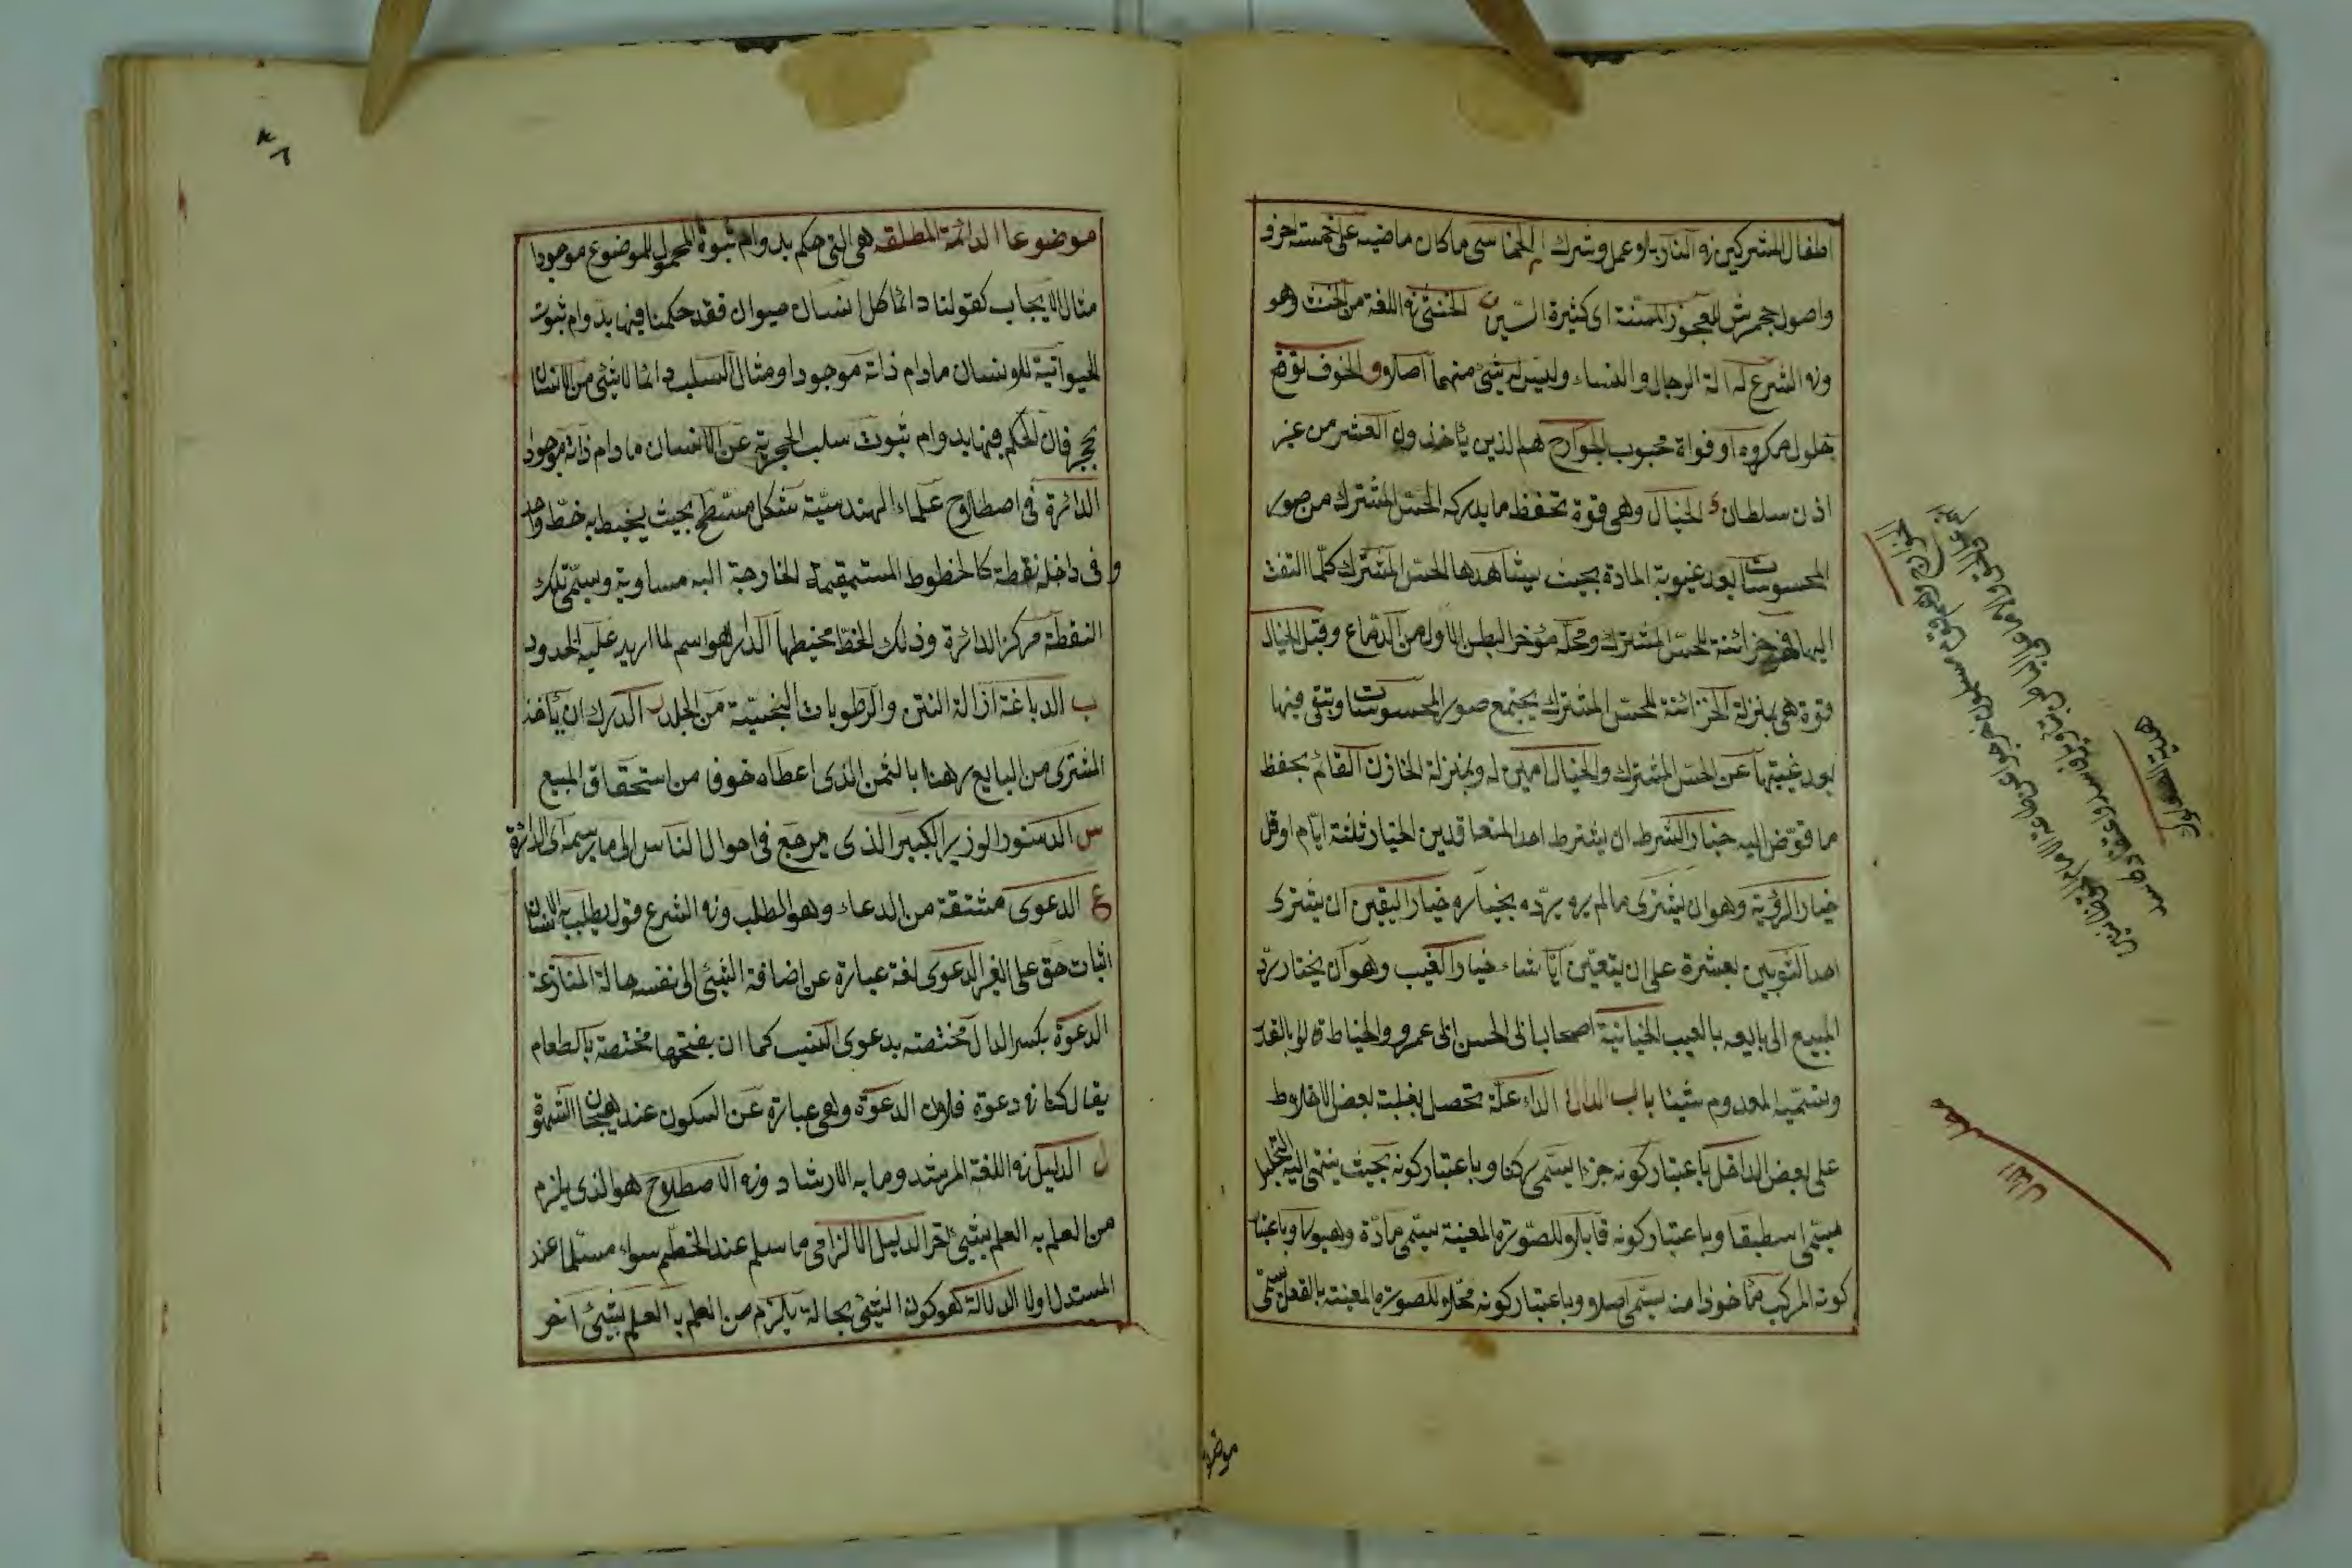 اطفال المشركين في النار بلا عمل وشرك الخماسى ما كان ماضيه على خمسته احرف
واصول جحمرش للعجوز المسنة اى كثيرة السن ن الخنثى في اللغة من الخنث وهو
وفي الشرع له الة الرجال والنساء وليس له شئ منهما اصلا و الخوف توقع
حلول مكروه او فواة محبوب الخوارج هم الذين يأخذون العشر من غير
اذن سلطان ى الخيال وهى قوة تحفظ ما يدركه الحس المشترك من صور
المحسوسات بعد غيبوبة المادة بحيث يشاهدها الحس المشترك كلما التفت
اليها فهى خزائنة للحس المشترك ومحله مؤخر البطن الاول من الدماغ وقيل الخيال
قوة هى بمنزلة الخزائنة للحس المشترك يجتمع صور المحسوسات وتبقى فيها
بعد غيبتها عن الحس المشترك والخيال امين له وبمنزلة الخازن القائم بحفظ
ما فوض اليه خيار الشرط ان يشترط احد المتعاقدين الخيار ثلثة ايام او قل
خيار الرؤية وهو ان يشترى ما لم يره يرده بخياره خيار اليقين ان يشترى
احد الثوبين بعشرة على ان يتعين ايا شاء خيار العيب وهو ان يختار رد
المبيع الى بايعه بالعيب الخيانية اصحاب ابى الحسن ابى عمرو والخياط قالو بالقدر
وتسمية المعدوم شيئا باب الدال الداء علة تحصل بغلبة بعض الاخلاط
على بعض الداخل باعتبار كونه جزءا يسمى ركنا وباعتبار كونه بحيث ينتهى اليه التحليل
يسمى اسطقسا وباعتبار كونه قابلا للصورة المعينة يسمى مادة وهيولا وباعتبار
كونه المركب مأخوذا منه يسمى اصلا وباعتبار كونه محلا للصورة المعينة بالفعل يسمى
موضوعا
هدية الصعلوك
باب الدال
موضوعا الدائمة المطلقة هى التى حكم بدوام ثبوة المحمول للموضوع موجودا
مثال الايجاب كقولنا دائما كل انسان حيوان فقد حكمنا فيها بدوام ثبوت
الحيوانية للانسان مادام ذاته موجودا ومثال السلب دائما لا شئ من الانسان
بحجر فان الحكم فيها بدوام ثبوت سلب الحجرية عن الانسان مادام ذاته موجودا
الدائرة فى اصطلاح علماء الهندسية شكل مسطح بحيث يحيط به خط واحد
و فى داخله نقطة كالخطوط المستقيمة الخارجة اليه مساوية وسمى تلك
النقطة مركز الدائرة وذلك الخط محيطها الدار هو اسم لما ادير عليه الحدود
ب الدباغة ازالة النتن والرطوبات النجسية من الجلد ر الدرك ان يأخذ
المشترى من البايع رهنا بالثمن الذى اعطاه خوف من استحقاق المبيع
س الدستور الوزير الكبير الذى يرجع فى احوال الناس الى ما يرسمه اى الدائرة
ع الدعوى مشتقة من الدعاء وهو الطلب وفي الشرع قول يطلب به الانسان
اثبات حق على الغير الدعوى لغة عبارة عن اضافة الشئ الى نفسه حالة المنازعة
الدعوة بكسر الدال مختصة بدعوى النسب كما ان بفتحها مختصة بالطعام
يقال كنا في دعوة فلان الدعوة وهى عبارة عن السكون عند هيجان الشهوة
ل الدليل في اللغة المرشد وما به الارشاد وفي الاصطلاح هو الذى يلزم
من العلم به العلم بشئ اخر الدليل الالزامى ما سلم عند الخصم سواء مستلما عند
المستدل اولا الدلالة هو كون الشئ بحالة يلزم من العلم به العلم بشئ اخر